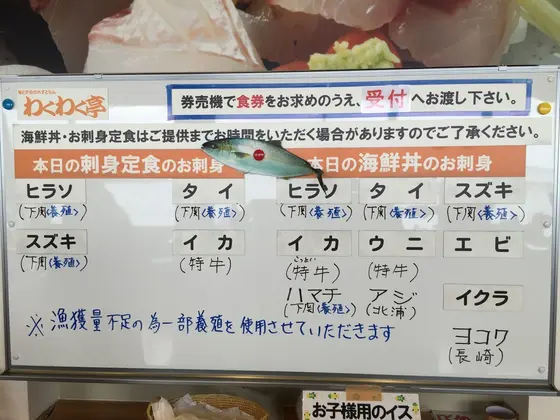 わくわく亭
券売機で食券をお求めのうえ、受付へお渡し下さい。
海鮮丼・お刺身定食はご提供までお時間をいただく場合がありますのでご了承ください。
本日の刺身定食のお刺身
ヒラソ タイ
(下関〈養殖〉) (下関〈養殖〉)
スズキ イカ
(下関〈養殖〉) (特牛)
本日の海鮮丼のお刺身
ヒラソ タイ スズキ
(下関〈養殖〉) (下関〈養殖〉) (下関〈養殖〉)
イカ ウニ エビ
こっとい
(特牛) (特牛)
ハマチ アジ イクラ
(下関〈養殖〉) (北浦)
ヨコワ
(長崎)
※漁獲量不足の為一部養殖を使用させていただきます
お子様用のイス